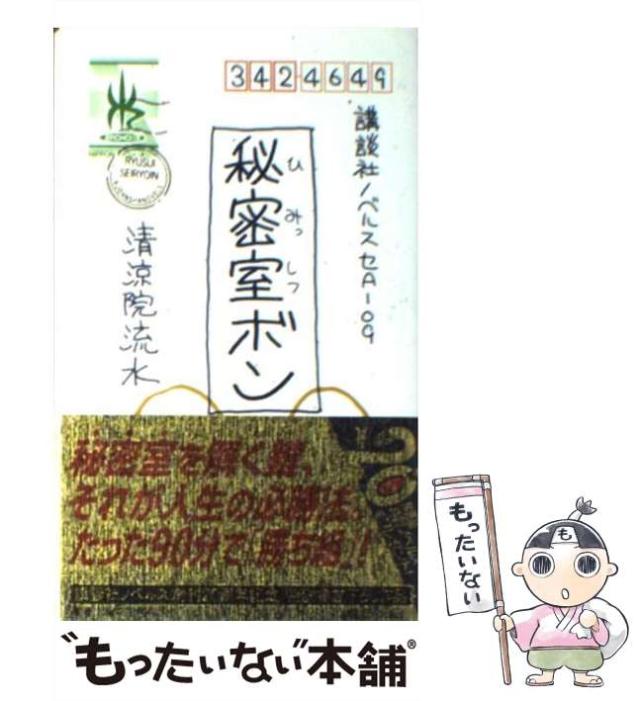 3424649
講談社ノベルスセA-09
秘密室ボン
ひみっしつ
清涼院流水
RYUSUI
SEIRYOIN
秘密室を輝く鍵、
それが人生の必勝法。
たった90分で勝ち組!!
"もったいない"本舗®
もったいない
も